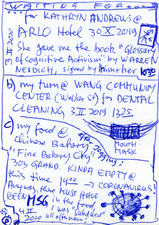 WAITING FOR
for KATHRYN ANDREWS @
a) ARLO Hotel 30 X 2019
She gave me the book, "Glossary
of Cognitive Activism" by WARREN
NEIDICH, signed by him & her
b) my turn @ WANG COMMUNITY
CENTER (Walker St) for DENTAL
CLEANING, 3 II 2019 1325
c) my food @
Chinese Bakery
"Fine Bakery City"
MOUTH MASK
303 GRAND KINDA EMPTY @
this time 1400 → CORONAVIRUS!
Anyways, there MUST HAVE
BEEN MSG in the food
4 II 2020 all afternoon